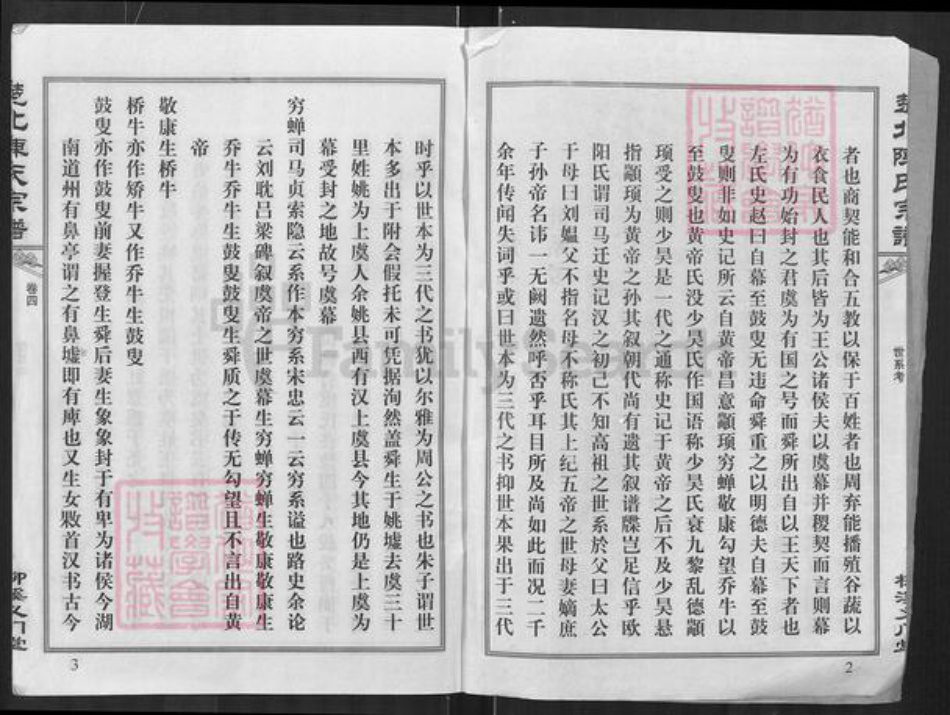 者也商契能和合五教以保于百姓者也周弃能播殖谷蔬以
衣食民人也其后皆为王公诸侯夫以虞幕并稷契而言则幕
为有功始封之君虞为有国之号而舜所出自以王天下者也
左氏史赵曰自幕至鼓叟无违命舜重之以明德夫自幕至鼓
叟则非如史记所云自黄帝昌意颛顼穷蝉敬康勾望乔牛以
至鼓叟也黄帝氏没少昊氏作国语称少昊氏衰九黎乱德颛
顼受之则少昊是一代之通称史记于黄帝之后不及少昊悬
指颛顼为黄帝之孙其叙朝代尚有遗其叙谱牒岂足信乎欧
阳氏谓司马迁史记汉之初己不知高祖之世系於父曰太公
于母曰刘媪父不指名母不称氏其上纪五帝之世母妻嫡庶
子孙帝名讳一无阙遗然呼否乎耳目所及尚如此而况二千
余年传闻失词乎或曰世本为三代之书抑世本果出于三代
2
楚北陈氏宗谱
世系考
时乎以世本为三代之书犹以尔雅为周公之书也朱子谓世
本多出于附会假托未可凭据洵然盖舜生于姚墟去虞三十
里姓姚为上虞人余姚县西有汉上虞县今其地仍是上虞为
幕受封之地故号虞幕
穷蝉司马贞索隐云系作本穷系宋忠云一云穷系谥也路史余论
云刘耽吕梁碑叙虞帝之世虞幕生穷蝉穷蝉生敬康敬康生
乔牛乔牛生鼓叟鼓叟生舜质之于传无勾望且不言出自黄
帝
敬康生桥牛
桥牛亦作矫牛又作乔牛生鼓叟
鼓叟亦作鼓叟前妻握登生舜后妻生象象封于有卑为诸侯今湖
南道州有鼻亭谓之有鼻墟即有庳也又生女敤首汉书古今
楚北陈氏宗谱
卷四
3
收藏
谱学会
FamilySearch